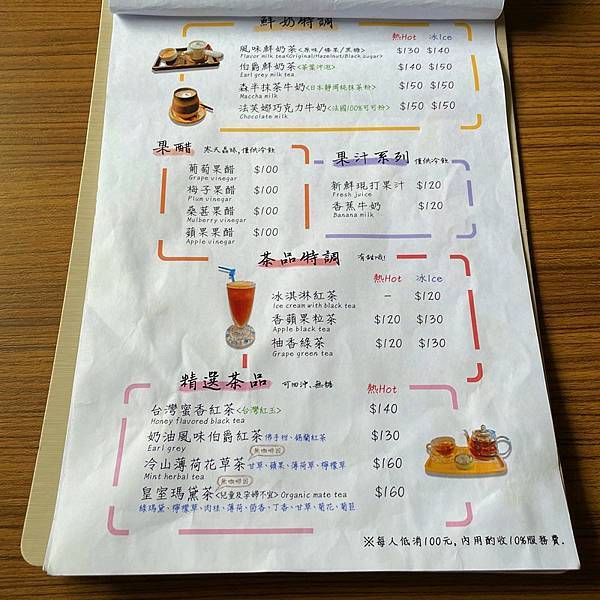 鮮奶特調
熱Hot 冰Ice
風味鮮奶茶<原味/榛果/黑糖> $130 $140
Flavor milk tea<Original/Hazelnut/Black sugar>
伯爵鮮奶茶<茶葉沖泡> $140 $150
Earl grey milk tea
森半抹茶牛奶<日本靜岡純抹茶粉> $150 $150
Maccha milk
法芙娜巧克力牛奶<法國100%可可粉> $150 $150
Chocolate milk
果醋 寒天晶球,僅供冷飲
葡萄果醋 $100
Grape vinegar
梅子果醋 $100
Plum vinegar
桑葚果醋 $100
Mulberry vinegar
蘋果果醋 $100
Apple vinegar
果汁系列 僅供冷飲
新鮮現打果汁 $120
Fresh juice
香蕉牛奶 $120
Banana milk
茶品特調 有甜哦!
熱Hot 冰Ice
冰淇淋紅茶 – $120
Ice cream with black tea
香蘋果粒茶 $120 $130
Apple black tea
柚香綠茶 $120 $130
Grape green tea
精選茶品 可回沖,無糖
熱Hot
台灣蜜香紅茶<台灣紅玉> $140
Honey flavored black tea
奶油風味伯爵紅茶 佛手柑、錫蘭紅茶 $130
Earl grey
無咖啡因
冷山薄荷花草茶 甘草、蘋果、薄荷、檸檬草 $160
Mint herbal tea
無咖啡因
皇室瑪黛茶<兒童及孕婦不宜> Organic mate tea $160
綠瑪黛、檸檬草、肉桂、薄荷、茴香、丁香、甘草、菊花、菊苣
※每人低消100元, 內用酌收10%服務費.